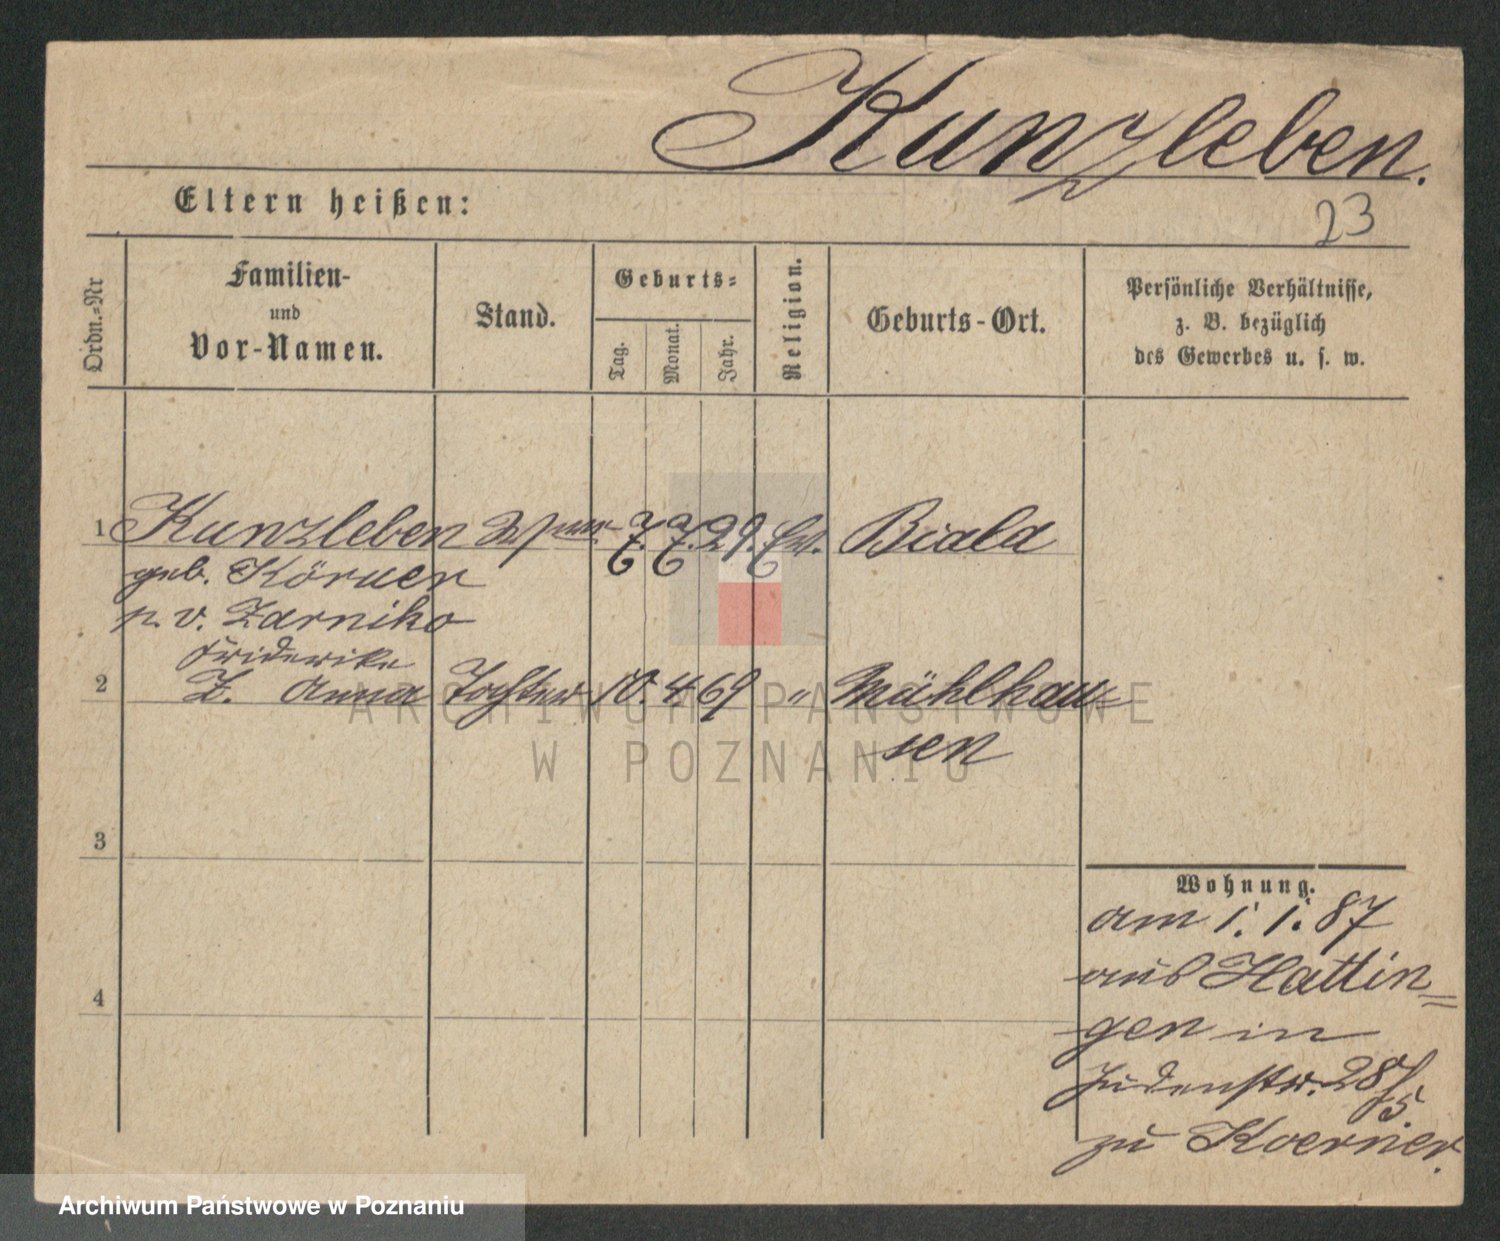 Kunzleben.
23
Eltern heißen:
Ordn.-Nr
Familien-
und
Vor-Namen.
Stand.
Geburts-
Tag.
Monat.
Jahr.
Religion.
Geburts-Ort.
Persönliche Verhältnisse,
z. B. bezüglich
des Gewerbes u. s. w.
1 Kunzleben 7. 7. 29. Ev. Biala
geb. Körner
v. Zarniko
Friderike
2 Z. Anna Tochter 10. 4. 69 " Mühlhau-
sen
3
4
Wohnung.
am 1. 1. 87
aus Hattin=
gen in
Judenstr. 28/
5.
zu Koerner.
ARCHIWUM PAŃSTWOWE
W POZNANIU
Archiwum Państwowe w Poznaniu